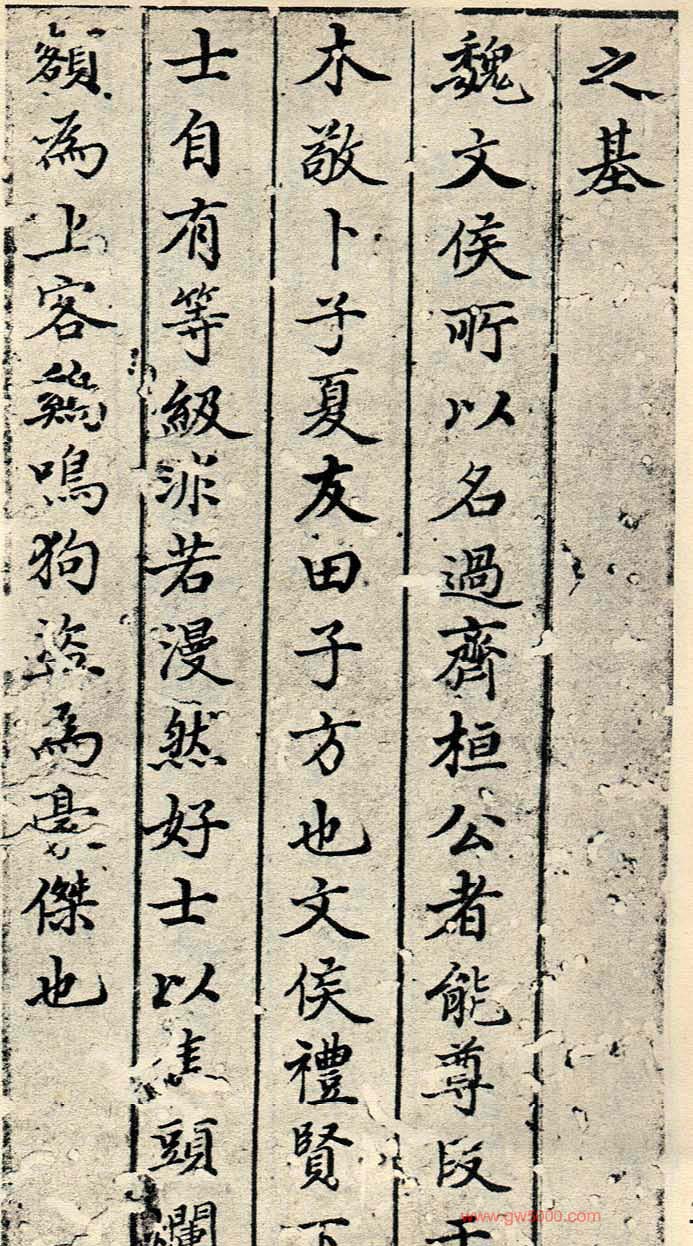 之基
魏文侯所以名過齊桓公者能尊段干
木敬卜子夏友田子方也文侯禮賢下
士自有等級非若漫然好士以焦頭爛
額為上客鷄鳴狗盜為豪傑也
www.gw5000.com